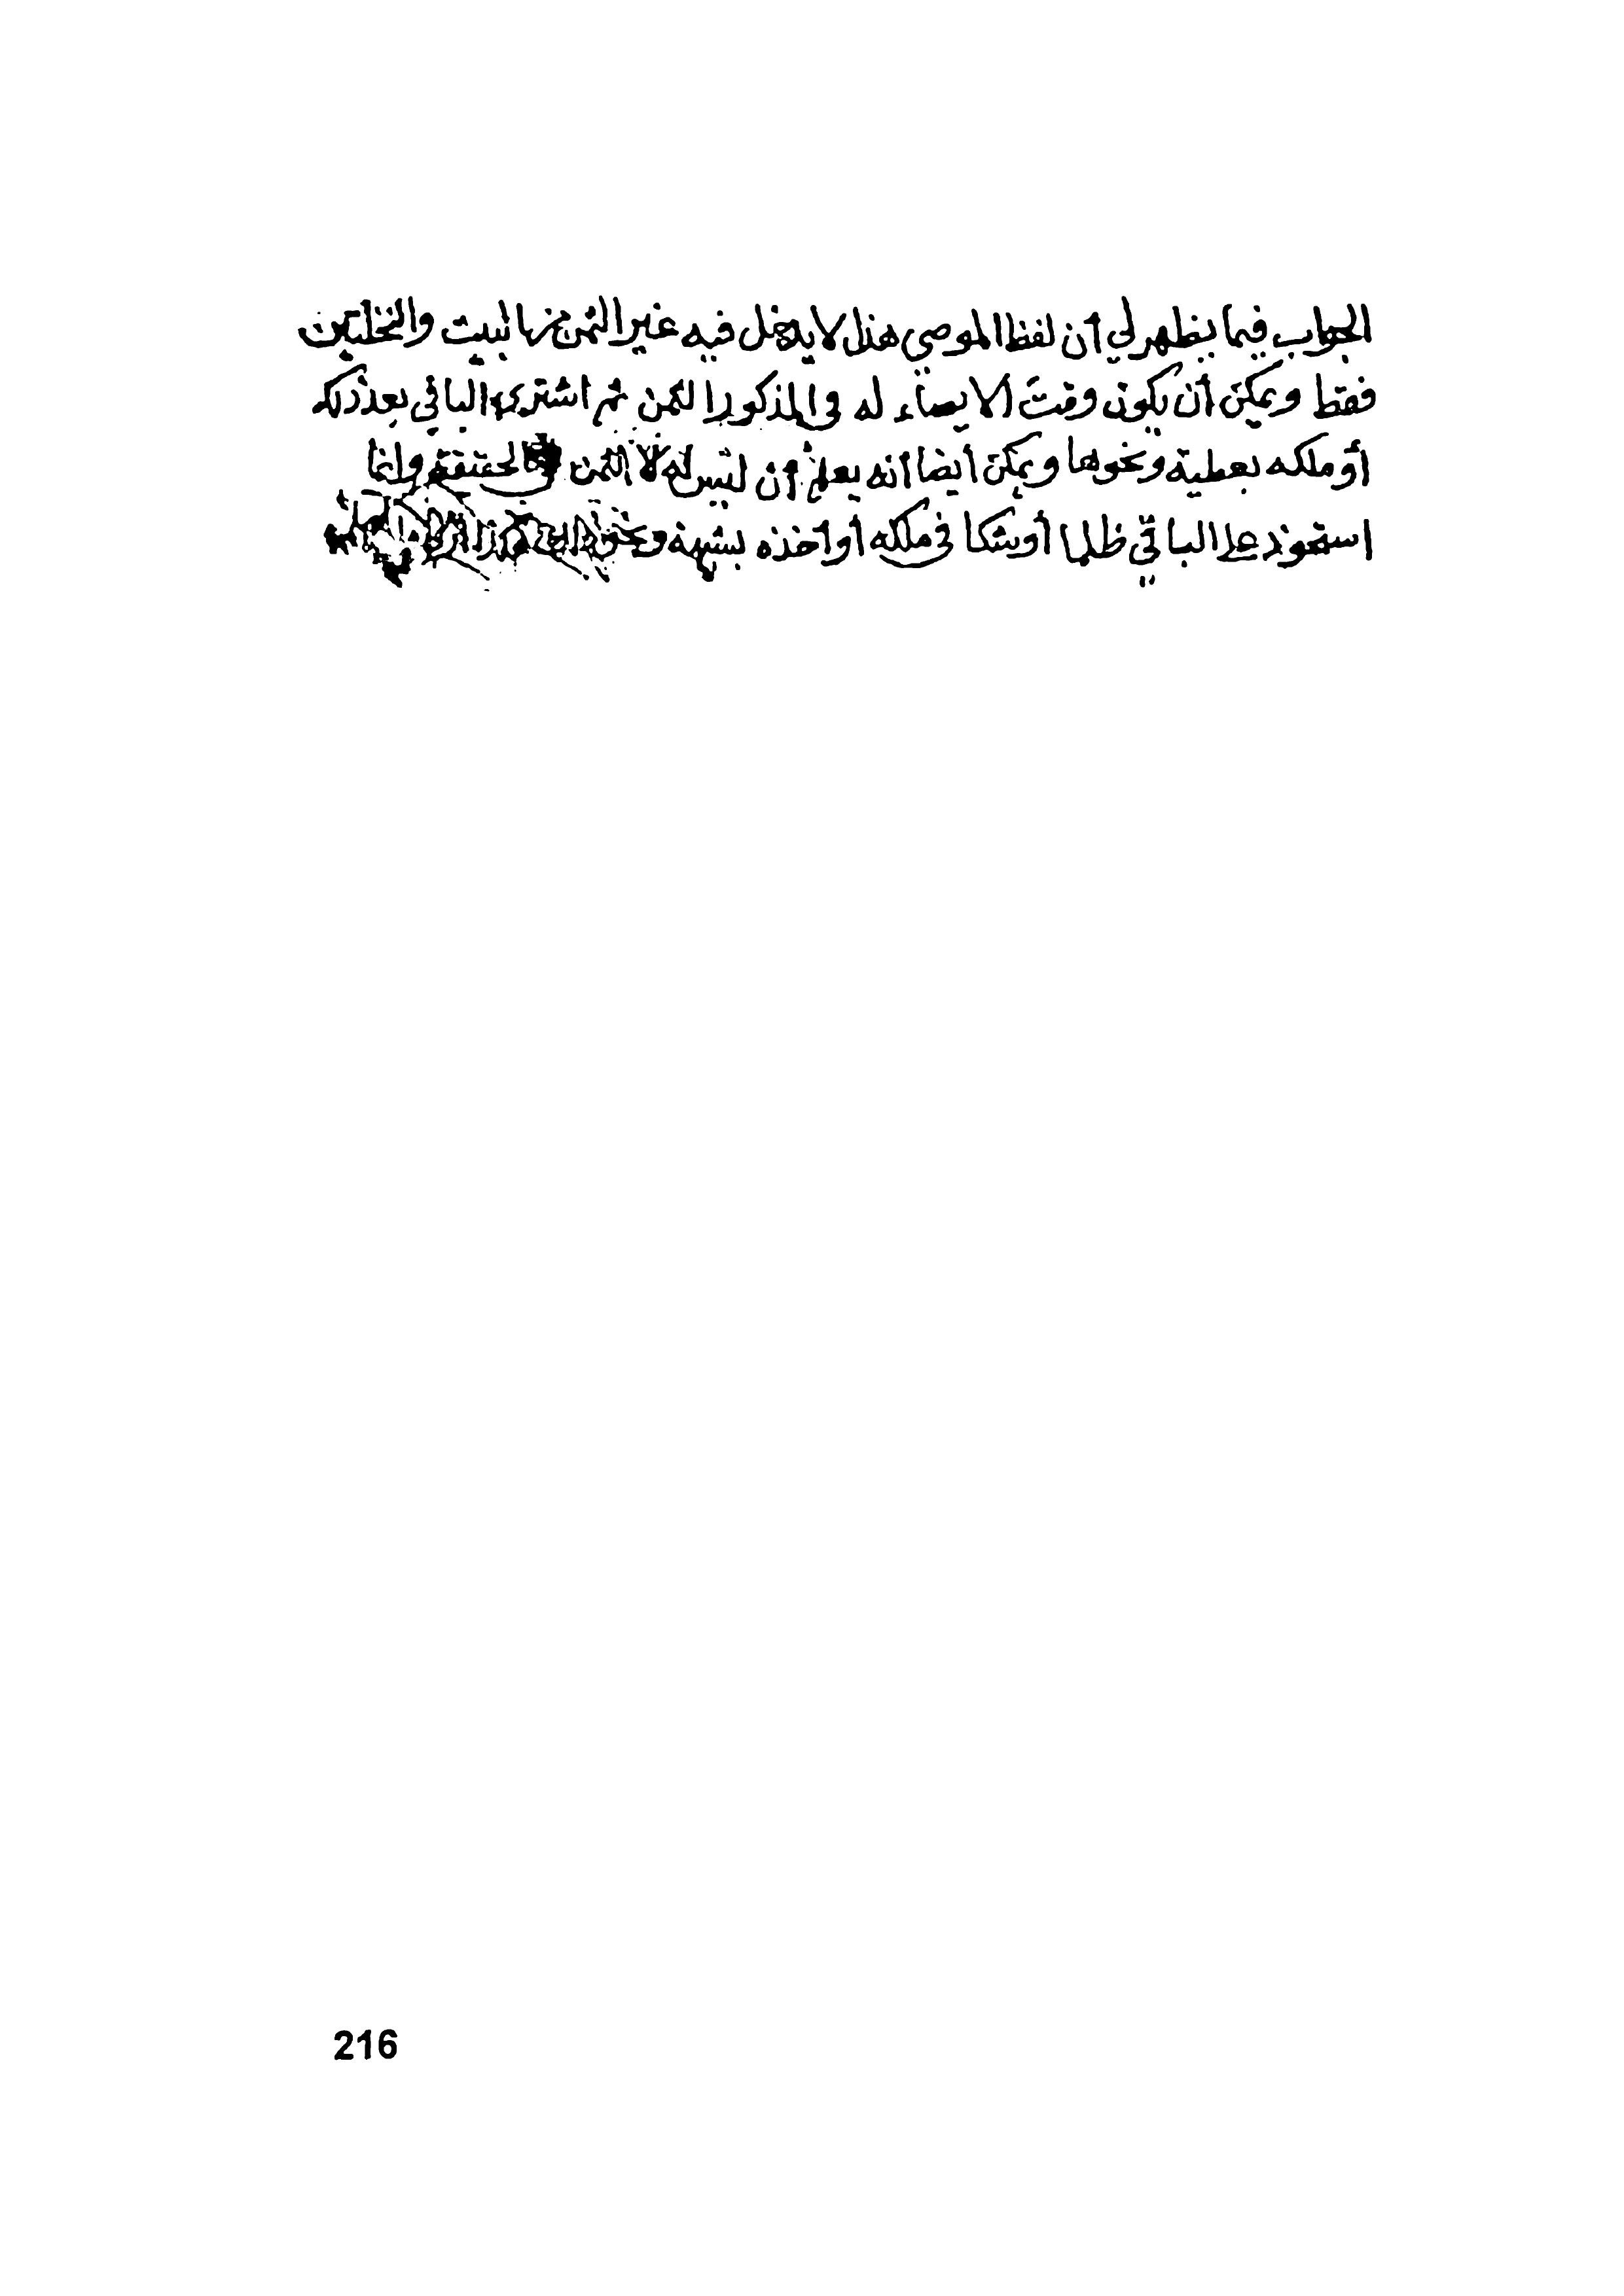 الجواب فيما يظهر لي أن لفظ الموصي هذا لا يدخل فيه غير الثمن من البيت والنخلتين
فقط ويمكن أن يكون وقت الايصاء له في المذكور الثمن ثم اشترى الباقي بعد ذلك
أو ملكه بعطية ونحوها ويمكن أيضا أنه يعلم أن ليس له الا الثمن في الحقيقة وإنما
استحوذ على الباقي ظلما أو شكا في ملكه أو أخذه بشبهة ونحو
216